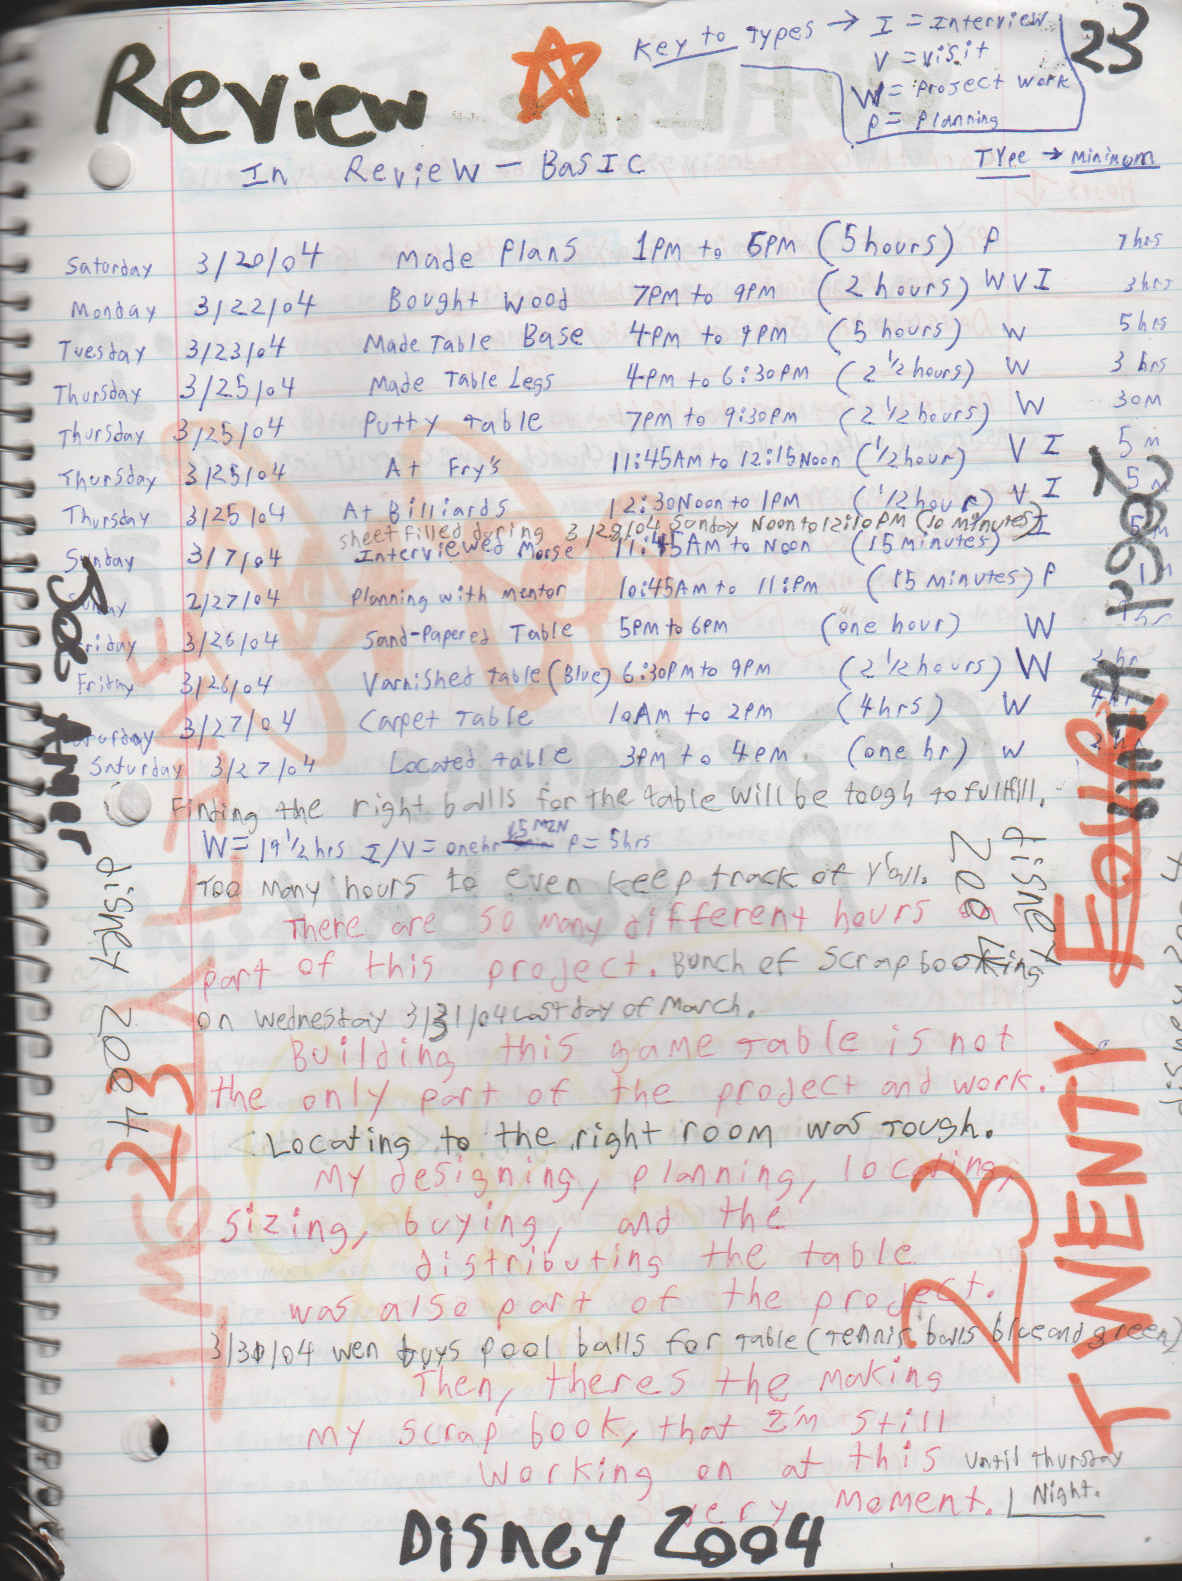 Review
Key to Types → I = Interview
V = Visit
W = Project Work
P = Planning
23
In Review - Basic
Type → Minimum
Saturday 3/20/04 Made Plans 1PM to 6PM (5 hours) P 7hrs
Monday 3/22/04 Bought Wood 7PM to 9PM (2 hours) W V I 3hrs
Tuesday 3/23/04 Made Table Base 4PM to 9PM (5 hours) W 5hrs
Thursday 3/25/04 Made Table Legs 4PM to 6:30PM (2 1/2 hours) W 3 hrs
Thursday 3/25/04 Putty Table 7PM to 9:30PM (2 1/2 hours) W 30M
Thursday 3/25/04 At Fry's 11:45AM to 12:15Noon (1/2 hour) V I 5 m
Thursday 3/25/04 At Billiards 12:30Noon to 1PM (1/2 hour) V I 5 m
sheet filled during 3/28/04 Sunday Noon to 12:10PM (10 minutes)
Sunday 3/7/04 Interviewed Morse 11:45AM to Noon (15 minutes) I 5m
Sunday 2/27/04 Planning with mentor 10:45AM to 11:PM (15 minutes) P
Friday 3/26/04 Sand-Papered Table 5PM to 6PM (one hour) W hr
Friday 3/26/04 Varnished table (Blue) 6:30PM to 9PM (2 1/2 hours) W 2 hr
Saturday 3/27/04 Carpet Table 10AM to 2PM (4hrs) W 4hr
Saturday 3/27/04 Located table 3PM to 4PM (one hr) W 2 hr
Finding the right balls for the table will be tough to fulfill.
W = 19 1/2 hrs I/V = one hr 15 MIN P = 5hrs
Too many hours to even keep track of y'all.
There are so many different hours on
part of this project. Bunch of scrapbooking
on Wednesday 3/31/04 Last day of March.
Building this game table is not
the only part of the project and work.
Locating to the right room was tough.
My designing, planning, locating,
sizing, buying, and the
distributing the table
was also part of the project.
3/30/04 wen buys pool balls for table (tennis balls blue and green)
Then, theres the making
my scrap book, that I'm still
working on at this until thursday
very moment. Night.
Disney 2004
Joe Amer
Disney 2004
23
Disney
2004
23
TWENTY FOUR